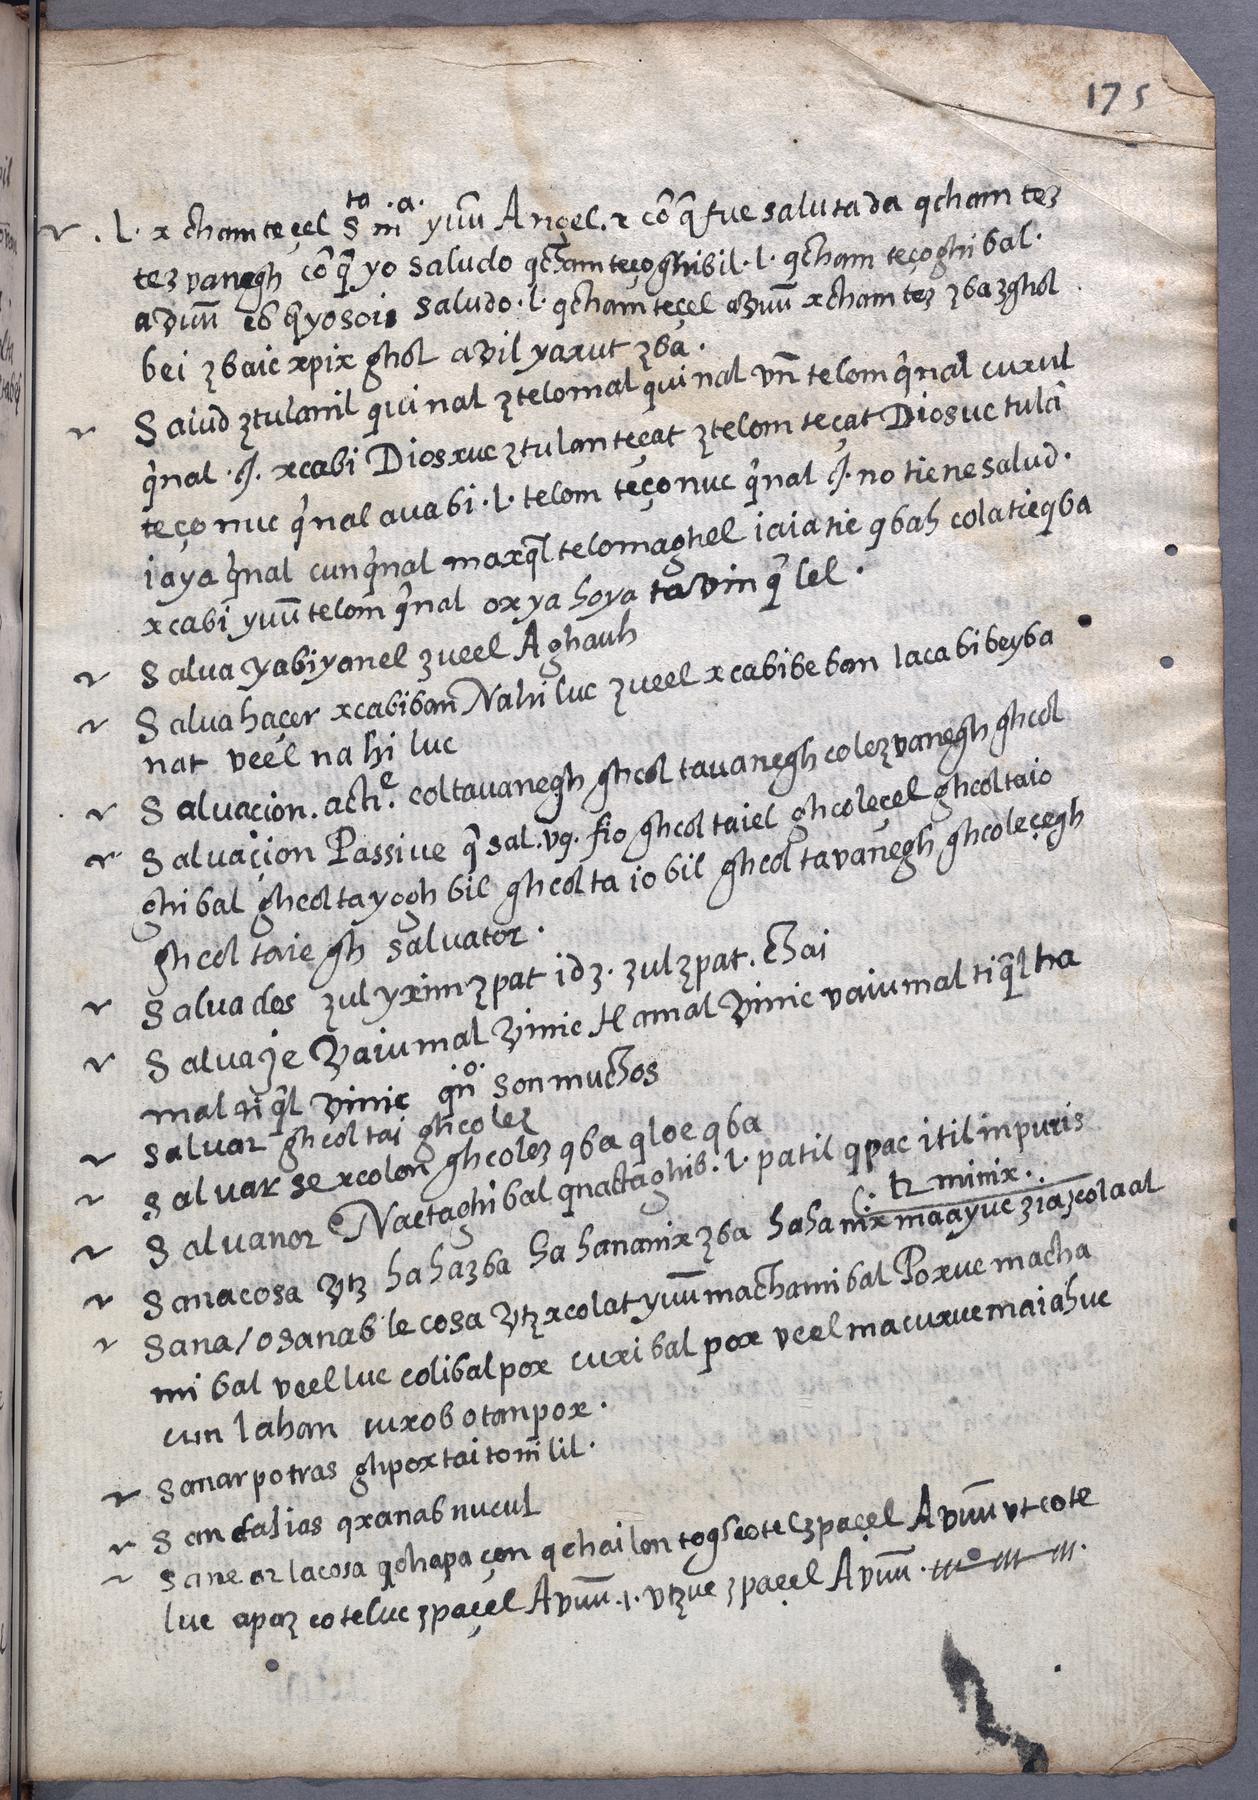 175
.l. x chamteçel S.ta m.a. yuū Angel. r cō q̄ fue salutada qcham tez
tez vanegh cōq̄ yo saludo qcham teçoghibil. l. qcham teçoghibal.
avuū cō q̄ yo soi saludo. l. qchamteçel avuū xcham tez zba zghol
bei zbaic xpix ghol avil yaxut zba.
Salud ztulanil quinal ztelomal quinal vn̄ telom q̄nal cuxul
q̄nal. ꝑ. xcabi Dios xuc ztulan teçat ztelom teçat Dios uc tulā
teço nuc q̄nal auabi. l. telom teço nuc q̄nal ꝑ. no tiene salud.
iaya q̄nal cun q̄nal maxq̄l telomaghel iaiatic qbah colatieqba
xcabi yuū telom q̄nal ox ya hoya ta vin q̄ lel.
Salua yabiyanel zueel Aghauh
Salua haçer xcabiban Nahiluc zueel xcabibe ban lacabibeyba
nat veel nahi luc
Saluaçion. acth.e coltauanegh ghcol tauanegh colezvanegh ghcol
Saluaçion Passiue q̄ sal. vg. fio ghcoltaiel ghcoleçel ghcoltaio
ghibal ghcoltayoghbil ghcolta iobil ghcoltavanegh ghcoleçegh
ghcol taiegh saluator.
Saluados zul yxim zpat idz. zulzpat. Chai
Saluaje Vaiumal vinic Hamal vinic vaiumal tiq̄l ha
mal tiq̄l vinic qn̄o son muchos
Saluar ghcoltai ghcolez
Saluarse xcolon ghcolez qba qloe qba
Saluanor Nactaghibal qnactaghib. l. patil qpac itil in puris
tz minix.
Sana cosa vtz hahazba hahananix zba hahanix maayuc zia, colaal
Sana / o sanable cosa vtz xcolat yuū machamibal Poxuc macha
mibal veelluc colibal pox cuxibal pox veel macuxuc maiahuc
cun lahan cuxob otanpox.
Sanar potras ghpoxtai tomlil.
Sandalias qxanab nucul
Sanear la cosa qchapa çon qchailon togh cotelzpaçel Avuū vt cote
luc apaz coteluc zpaçel Avuū. l. vtzuc zpaçel Avuū.